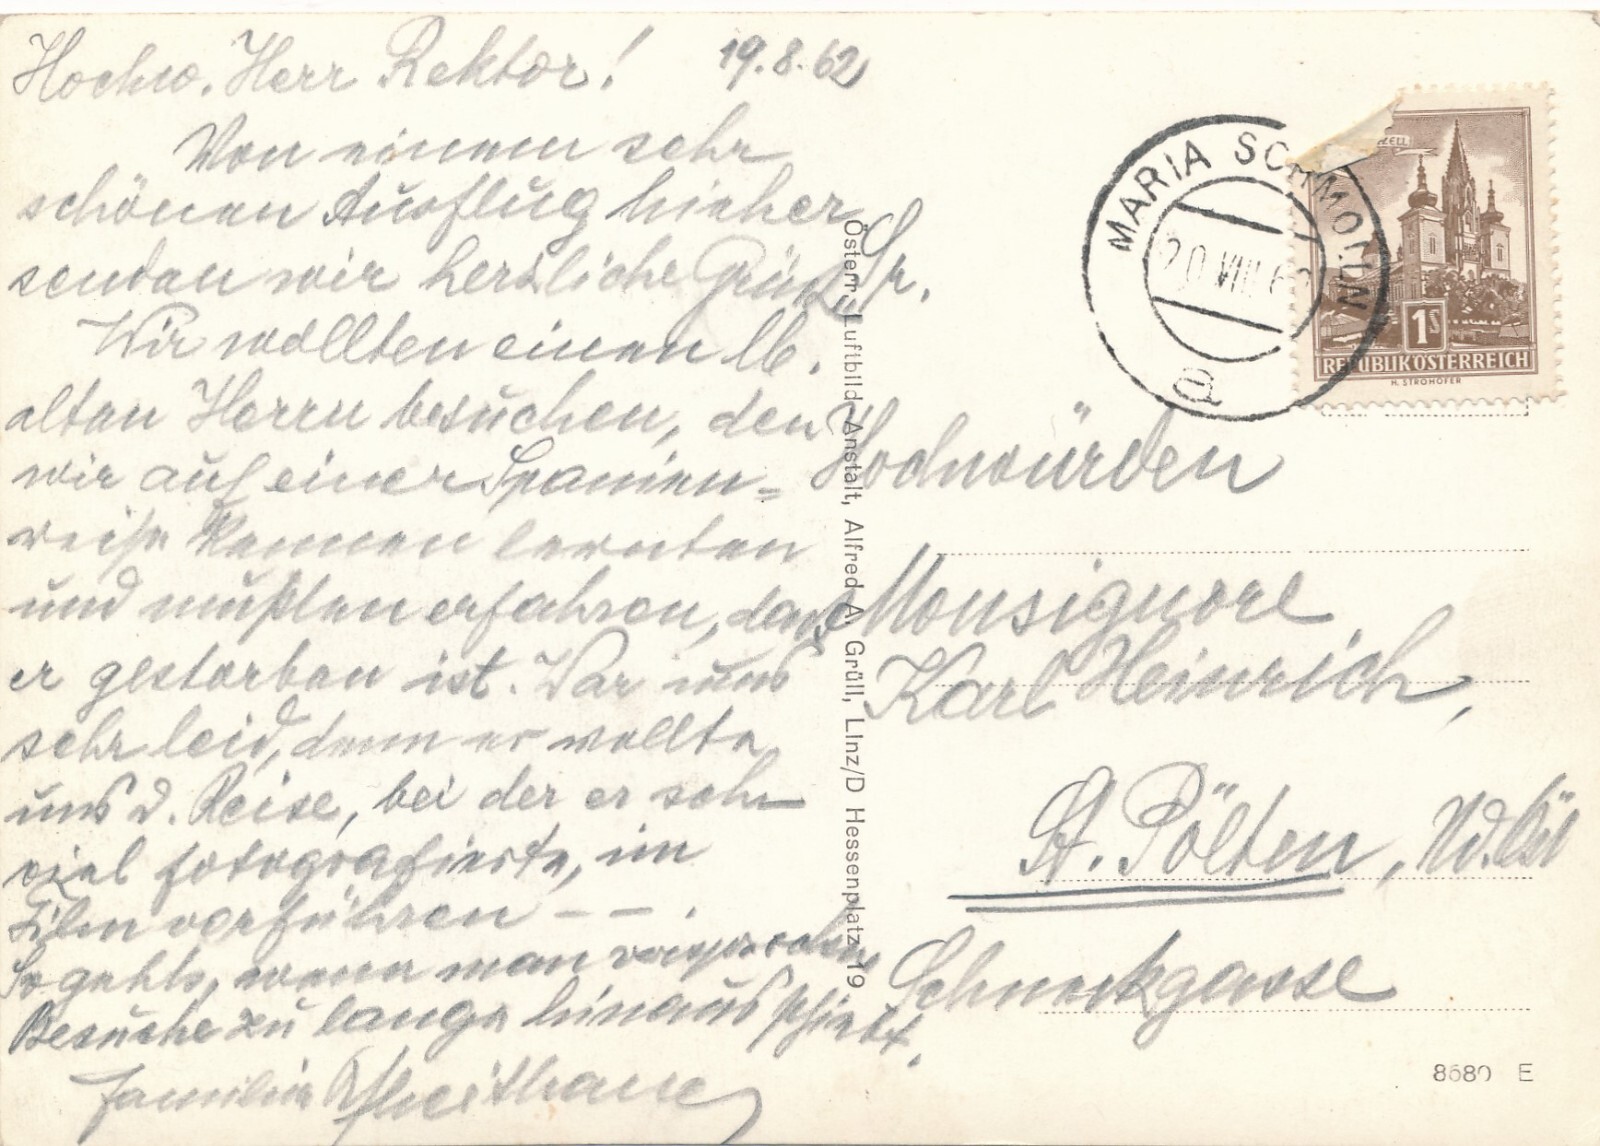 Hochw. Herr Rektor! 19.8.62
Von einem sehr
schönen Ausflug hieher
senden wir herzliche Grüße Gr.
Wir wollten einen lb.
alten Herrn besuchen, den
wir auf einer Spanien=
reise kennen lernten
und mußten erfahren, dass
er gestorben ist. War uns
sehr leid, denn er wollte
uns d. Reise, bei der er sehr
viel fotografierte, im
Film vorführen – – .
So gehts, wenn man
Besuche zu lange hinausschiebt.
Familie
Österr. Luftbild-Anstalt, Alfred A. Grüll, LInz/D Hessenplatz 19
MARIA SCHMOLLN
20.VIII.62
a
ZELL
1S
REPUBLIK ÖSTERREICH
H. STROHOFER
Hochwürden
Monsignore
Karl Heinrich,
St. Pölten, N.d.Öst
Schneckgasse
8680 E